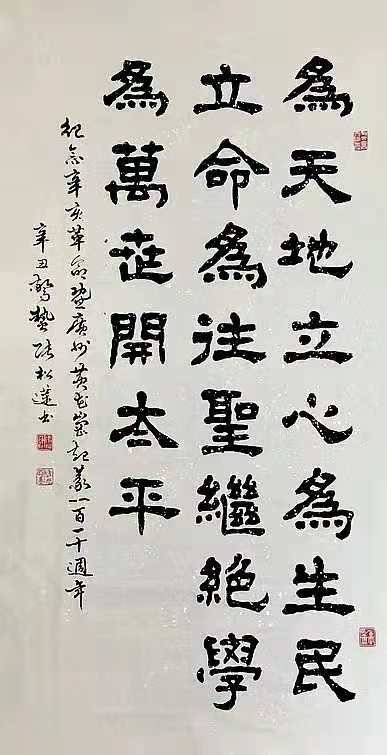 為天地立心為生民
立命為往聖繼絕學
為萬世開太平
紀念辛亥革命暨廣州黃花崗起義一百一十週年
辛丑驚蟄張松蓮書